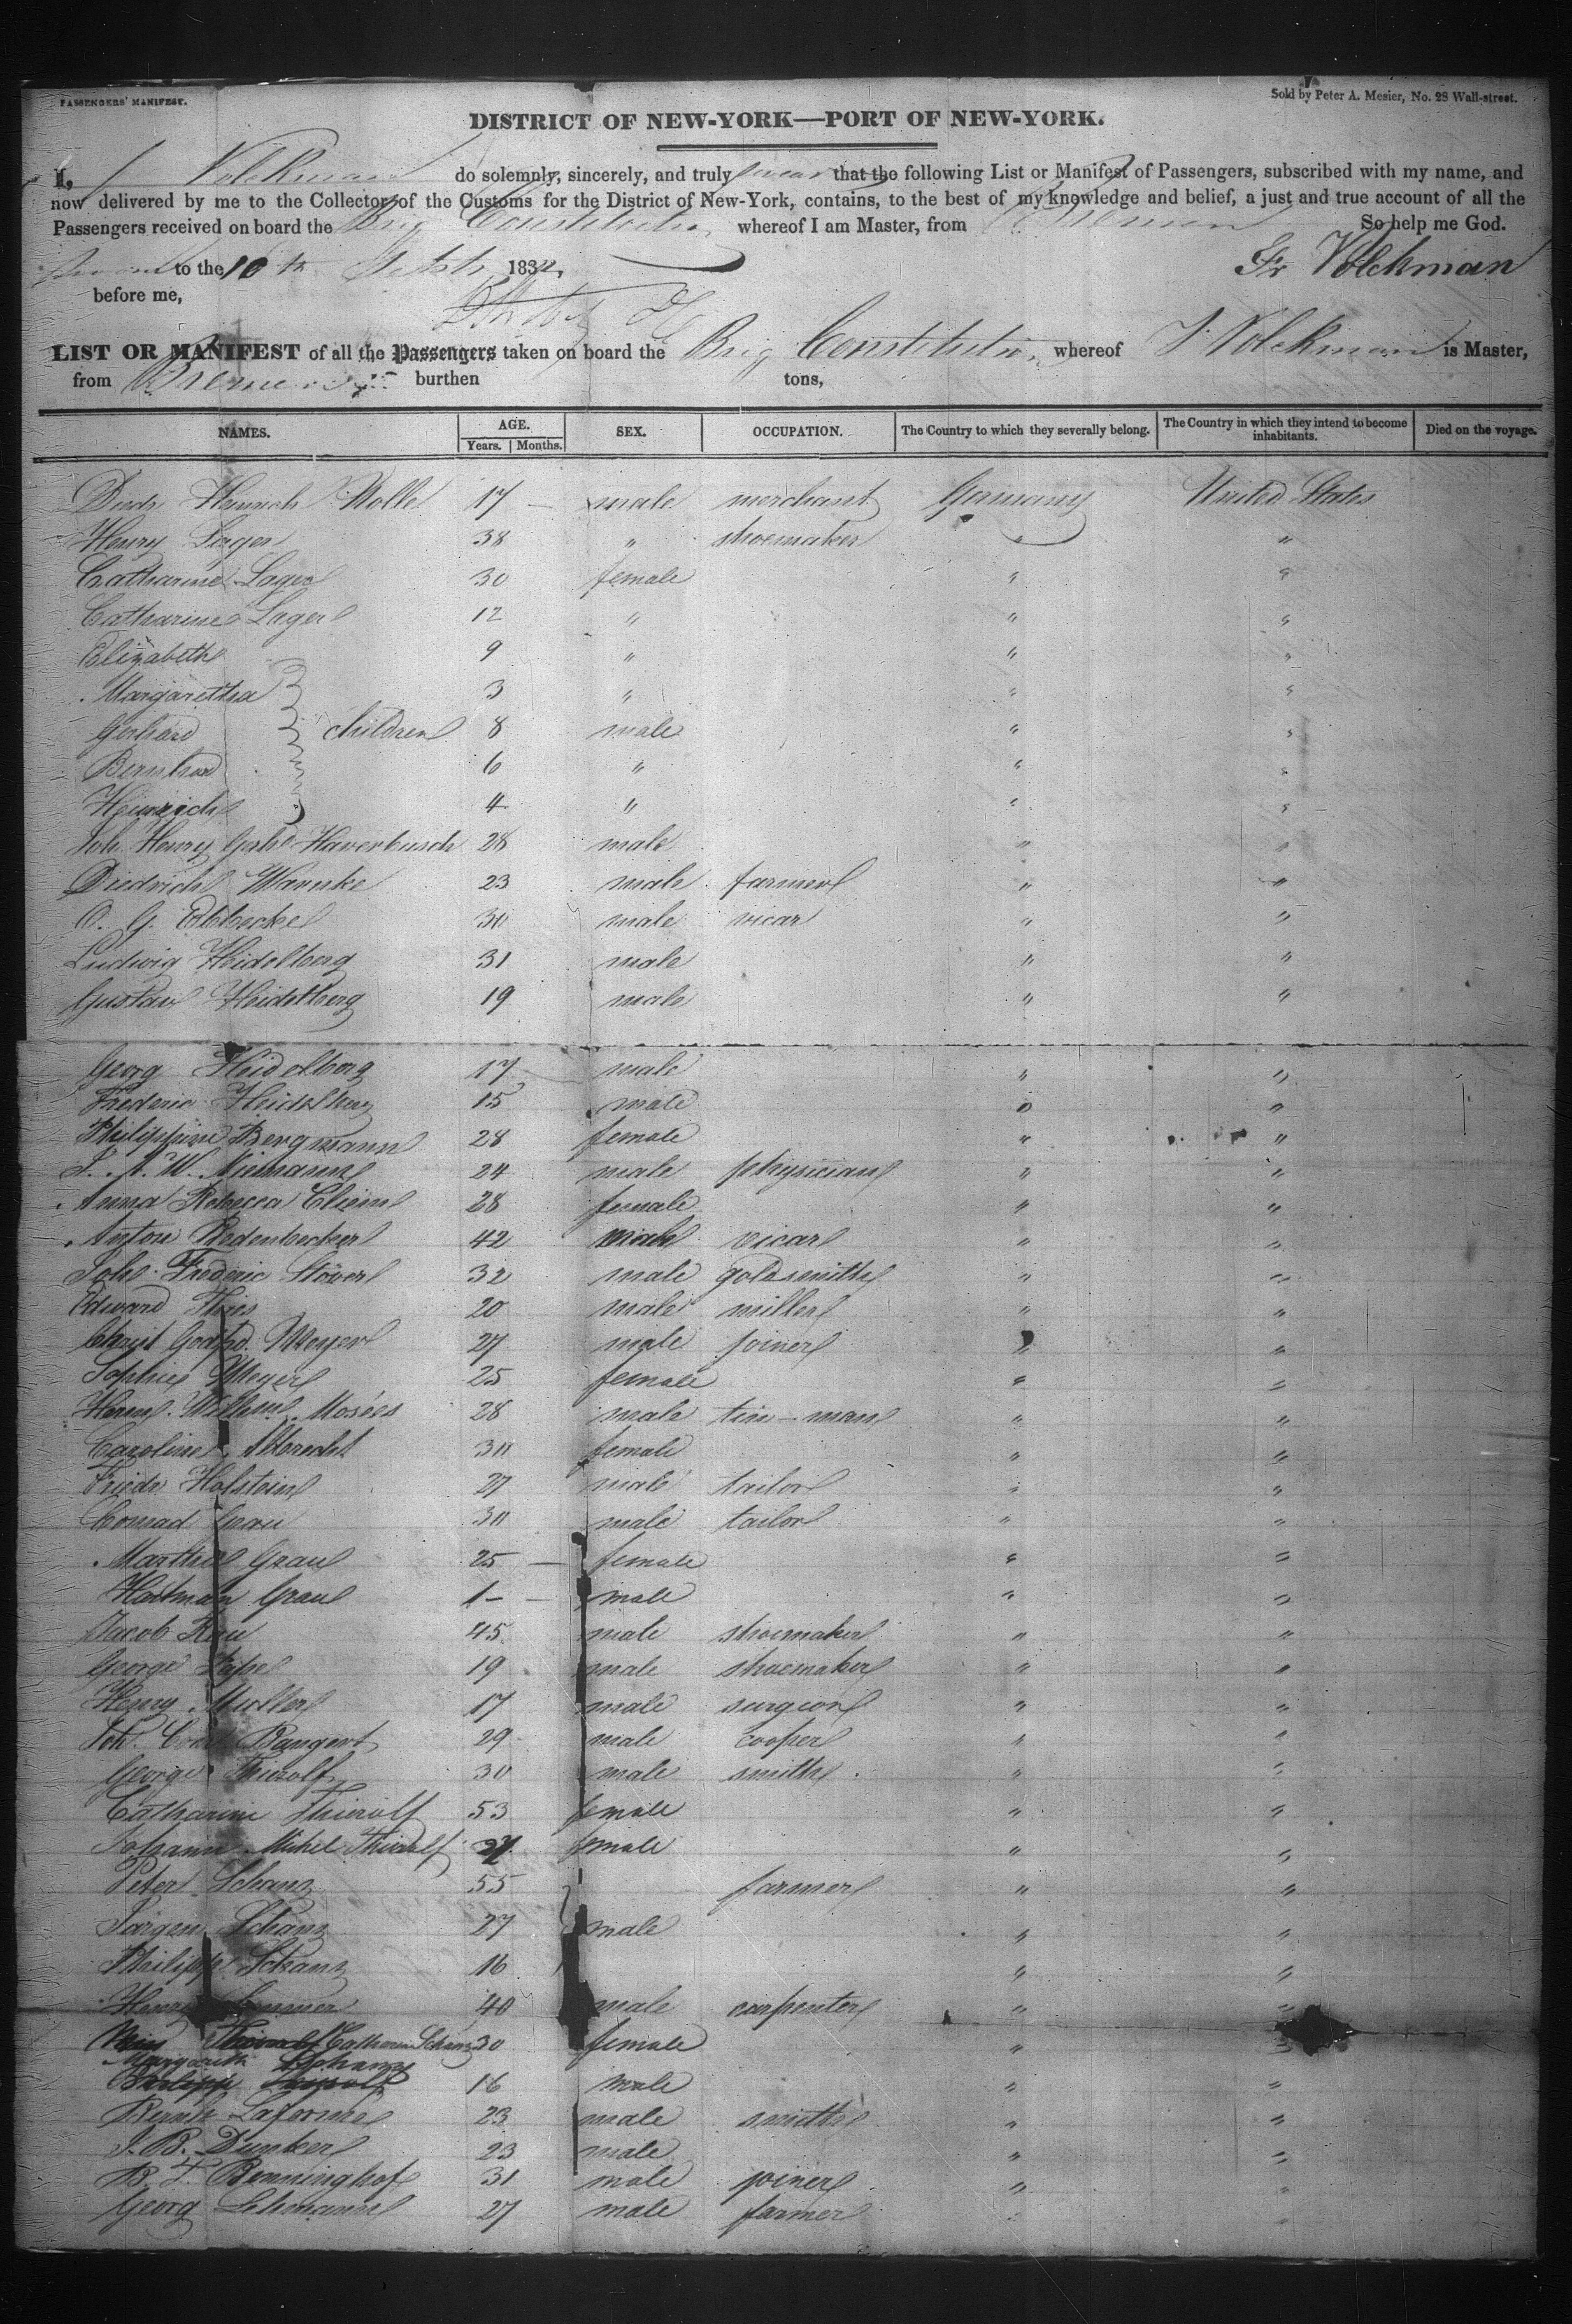 PASSENGERS' MANIFEST.
Sold by Peter A. Mesier, No. 28 Wall-street.
DISTRICT OF NEW-YORK—PORT OF NEW-YORK.
I, Volckman do solemnly, sincerely, and truly swear that the following List or Manifest of Passengers, subscribed with my name, and
now delivered by me to the Collector of the Customs for the District of New-York, contains, to the best of my knowledge and belief, a just and true account of all the
Passengers received on board the Brig Constitution whereof I am Master, from Bremen So help me God.
to the 10th Septr 1832. Fr Volckman
before me,
LIST OR MANIFEST of all the Passengers taken on board the Brig Constitution whereof Volckman is Master,
from Bremen burthen tons,
NAMES. AGE. SEX. OCCUPATION. The Country to which they severally belong. The Country in which they intend to become inhabitants. Died on the voyage.
Years. Months.
Heinrich Nolle 17 — male merchant Germany United States
Henry Lager 38 " shoemaker " "
Catharine Lager 30 female " "
Catharine Lager 12 " " "
Elizabeth 9 " " "
Margaretha 3 " " "
Gerhard children 8 male " "
Bernhard 6 " " "
Heinrich 4 " " "
Joh. Henry Gerhd Haverbusch 28 male " "
Diedrich Warnke 23 male farmer " "
O. G. 30 male vicar " "
Ludwig Heidelberg 31 male " "
Gustav Heidelberg 19 male " "
Georg Heidelberg 17 male " "
Frederic Heidelberg 15 male " "
Philippine Bergmann 28 female " "
W. Niemann 24 male physician " "
Anna Rebecca 28 female " "
Anton Redenbecker 42 male vicar " "
Joh. Frederic Stöver 32 male goldsmith " "
Edward Thies 20 male miller " "
Christ Godfrd. Meyer 27 male joiner " "
Sophie Meyer 25 female " "
Herm. Wilhelm 28 male tin-man " "
Caroline Albrecht 30 female " "
Friedr Holstein 27 male tailor " "
Conrad Grau 30 male tailor " "
Martha Grau 25 — female " "
Hartman Grau 1 — male " "
Jacob Rau 45 male shoemaker " "
George 19 male shoemaker " "
Henry Muller 17 male surgeon " "
Joh. Bangert 29 male cooper " "
George Thierolf 30 male smith " "
Catharine Thierolf 53 female " "
Johann Michel Thierolf 27 male " "
Peter Schanz 55 farmer " "
Jurgen Schanz 27 male " "
Philipp Schanz 16 " "
Henry 40 male carpenter " "
Catharine Schanz 30 female " "
Margareth Schanz
Philipp 16 male " "
Laforme 23 male smith " "
J. B. Dunker 23 male " "
B. F. Benninghof 31 male joiner " "
Georg Lehmann 27 male farmer " "